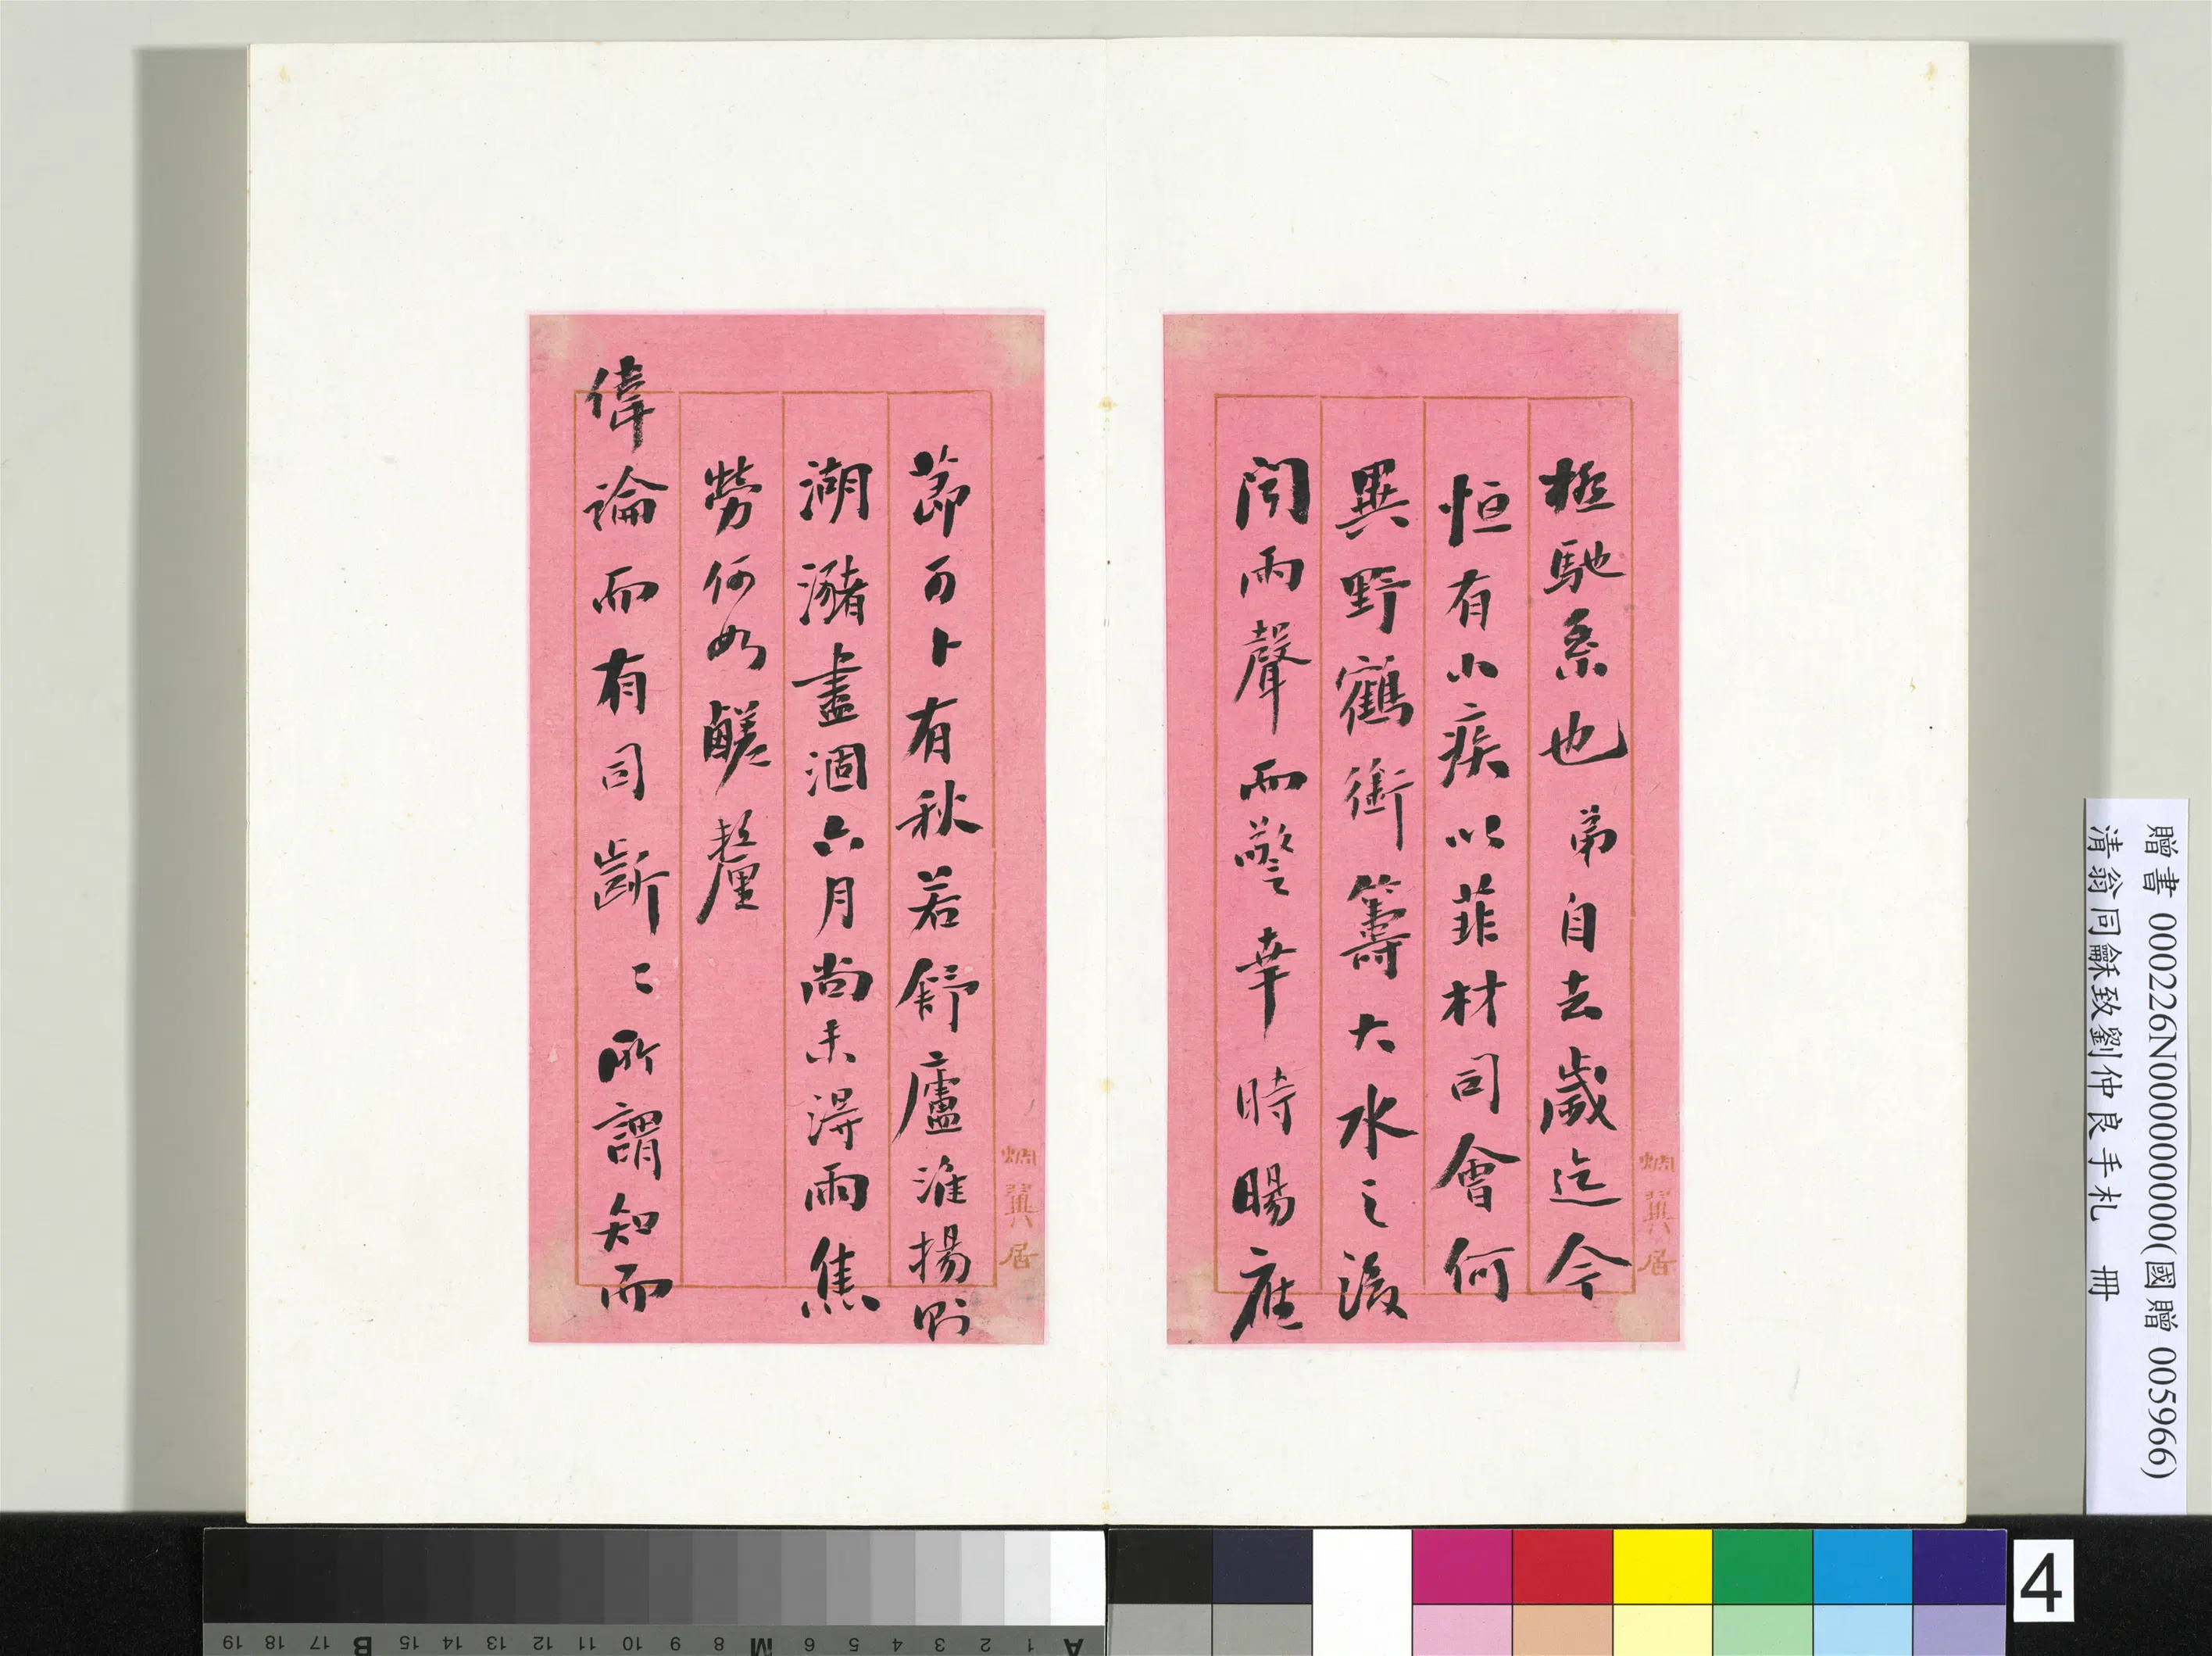 極馳系也弟自去歲迄今
恒有小疾以菲材司會何
異野鶴銜籌大水之後
聞雨聲而驚幸時暘應
節可卜有秋若舒廬淮揚則
湖瀦盡涸六月尚未得雨焦
勞何如鹾釐
偉論而有司齗〻所謂知而
翼居
翼居
贈書 000226N000000000(國贈 005966)
清翁同龢致劉仲良手札 冊
4
A 1 2 3 4 5 6 M 8 9 10 11 12 13 14 15 B 17 18 19